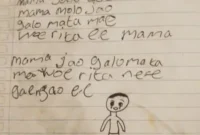 mama molo jao
galo mata mae
nee rita el mama
mama jao galo mata
mae rita nese
el